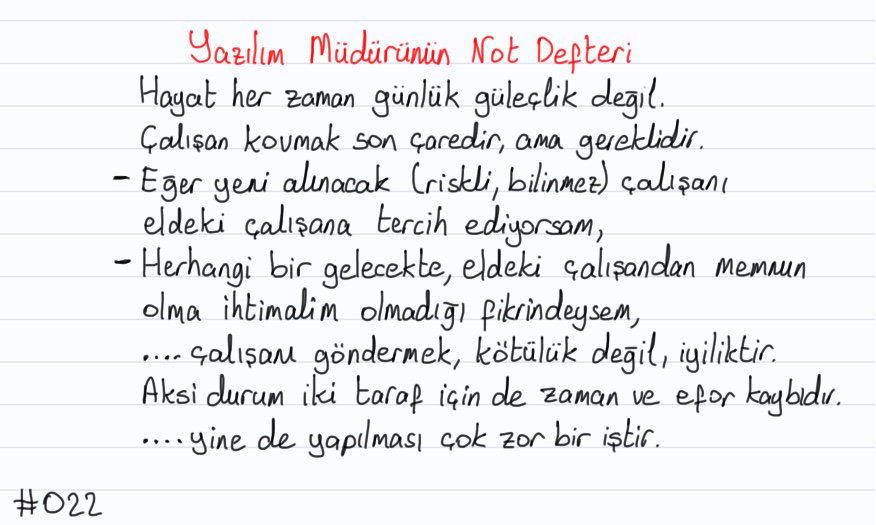 Yazılım Müdürünün Not Defteri
Hayat her zaman günlük güleçlik değil.
Çalışan kovmak son çaredir, ama gereklidir.
- Eğer yeni alınacak (riskli, bilinmez) çalışanı
eldeki çalışana tercih ediyorsam,
- Herhangi bir gelecekte, eldeki çalışandan memnun
olma ihtimalim olmadığı fikrindeysem,
.... çalışanı göndermek, kötülük değil, iyiliktir.
Aksi durum iki taraf için de zaman ve efor kaybıdır.
.... yine de yapılması çok zor bir iştir.
#022